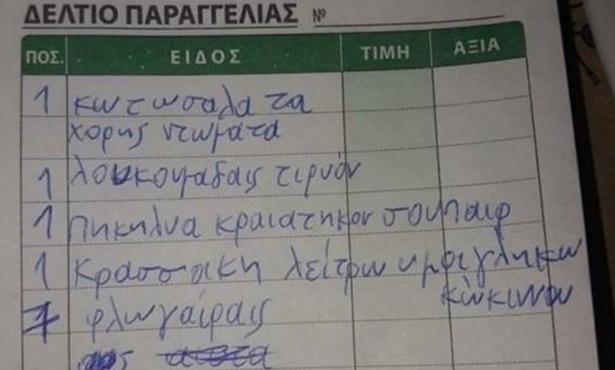 ΔΕΛΤΙΟ ΠΑΡΑΓΓΕΛΙΑΣ Νο
ΠΟΣ. ΕΙΔΟΣ ΤΙΜΗ ΑΞΙΑ
1 κωτωσαλατα
χορης ντωματα
1 λουκουμαδαις τιρυόν
1 πηκηλυα κραιατηκον σουπαιρ
1 κρασσακη λείτρων ημοιγληκων
κώκινου
1 φλωγαίραις